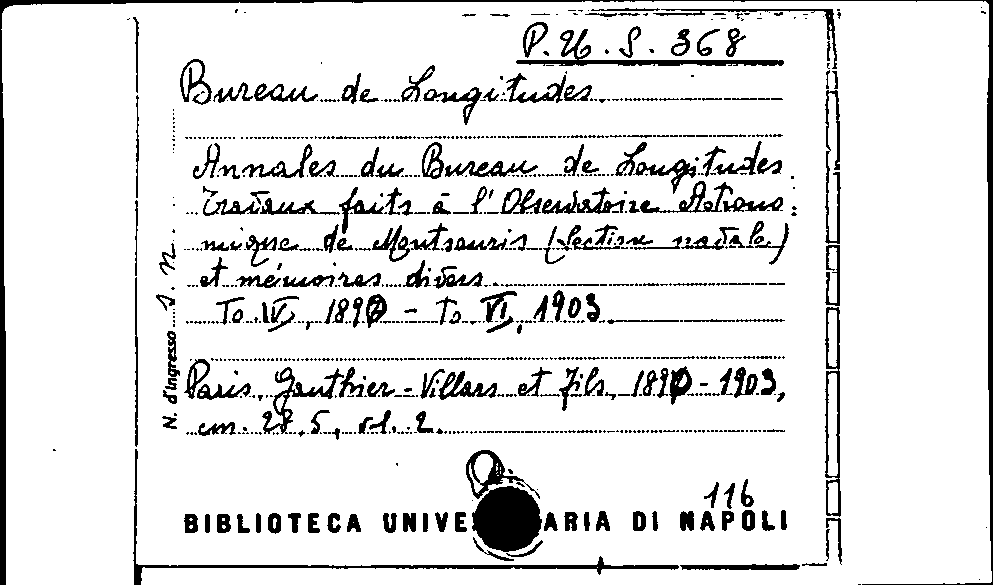 P. U. S. 368
Bureau de Longitudes.
Annales du Bureau de Longitudes.
Travaux faits à l'Observatoire Astrono:
mique de Montsouris (Section navale)
et mémoires divers.
To IV, 1890 - To VI, 1903.
Paris, Gauthier-Villars et Fils, 1890-1903,
cm. 28.5, vl. 2.
N. d'Ingresso S. N.
116
BIBLIOTECA UNIVE ARIA DI NAPOLI